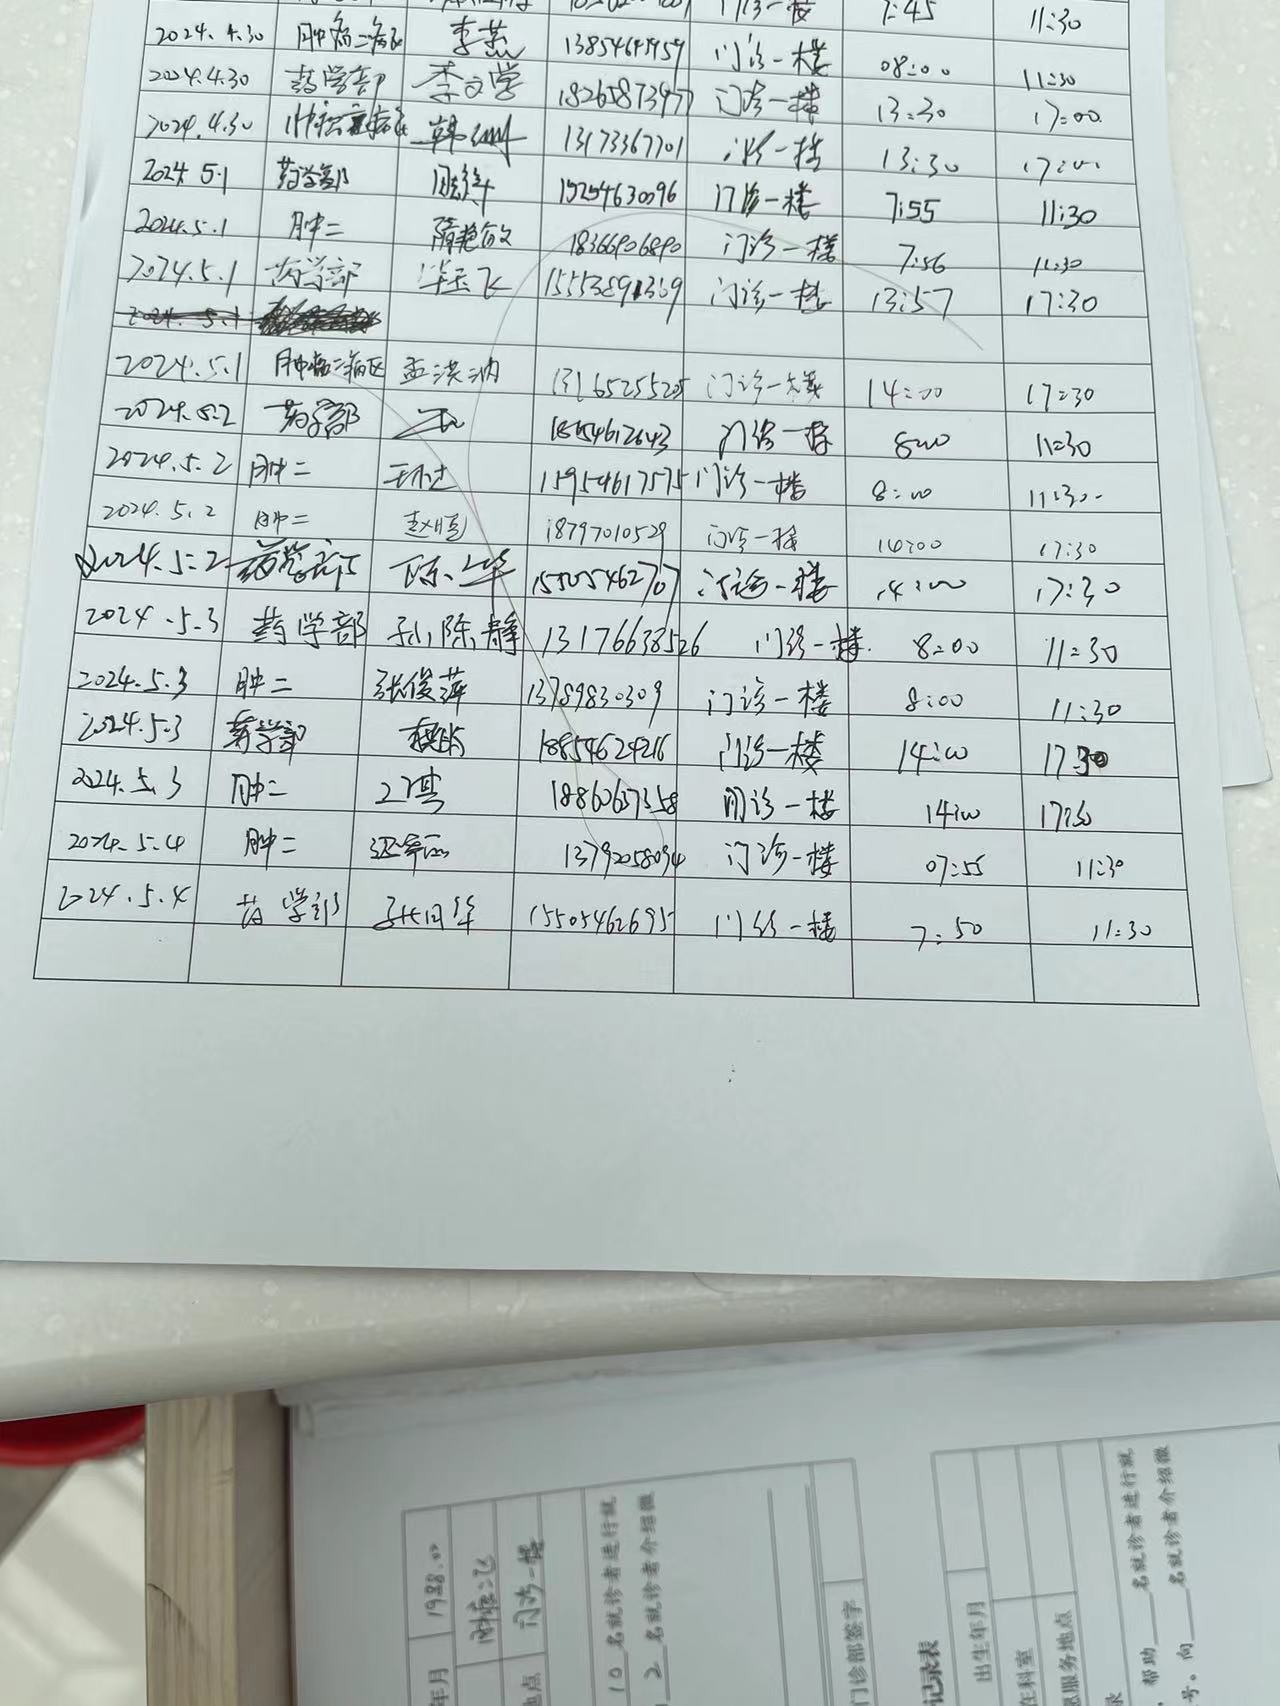 7:45 11:30
2024.4.30 肿瘤二病区 李燕 门诊一楼 08:00 11:30
2024.4.30 药学部 李文学 18265873977 门诊一楼 13:30 17:00
2024.4.30 韩 13173367701 门诊一楼 13:30 17:00
2024.5.1 药学部 15254630096 门诊一楼 7:55 11:30
2024.5.1 肿二 隋艳敏 18366906890 门诊一楼 7:56 11:30
2024.5.1 药学部 毕玉飞 门诊一楼 13:57 17:30
2024.5.1
2024.5.1 肿瘤二病区 孟洪 13165255205 门诊一楼 14:00 17:30
2024.5.2 药学部 18654612643 门诊一楼 8:00 11:30
2024.5.2 肿二 15954617575 门诊一楼 8:00 11:30
2024.5.2 肿二 赵 18797010529 门诊一楼 14:00 17:30
2024.5.2 药学部 15505462707 门诊一楼 14:00 17:30
2024.5.3 药学部 孙陈静 13176638526 门诊一楼 8:00 11:30
2024.5.3 肿二 张俊萍 13789830309 门诊一楼 8:00 11:30
2024.5.3 药学部 18854624216 门诊一楼 14:00 17:30
2024.5.3 肿二 门诊一楼 14:00 17:30
2024.5.4 肿二 13792058094 门诊一楼 07:55 11:30
2024.5.4 药学部 15505462695 门诊一楼 7:50 11:30
年月 1988.
地点 门诊一楼
10 名就诊者进行就
2 名就诊者介绍微
门诊部签字
记录表
出生年月
在科室
服务地点
录
帮助 名就诊者进行就
号。向 名就诊者介绍微